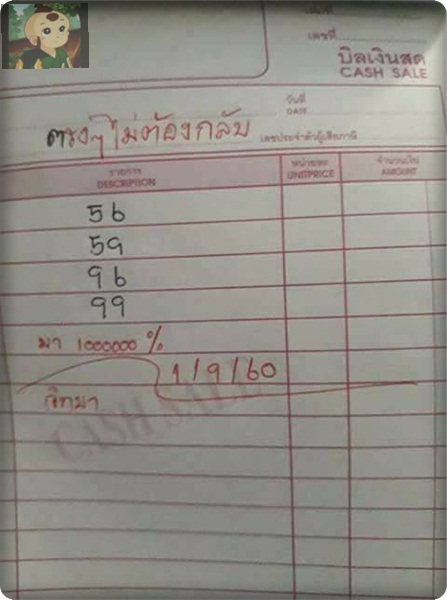 เลขที่
บิลเงินสด
CASH SALE
วันที่
DATE
ตรงๆ ไม่ต้องกลับ
เลขประจำตัวผู้เสียภาษี
รายการ
DESCRIPTION
หน่วยละ
UNITPRICE
จำนวนเงิน
AMOUNT
56
59
96
99
มา 1000000 %
1/9/60
CASH SALE